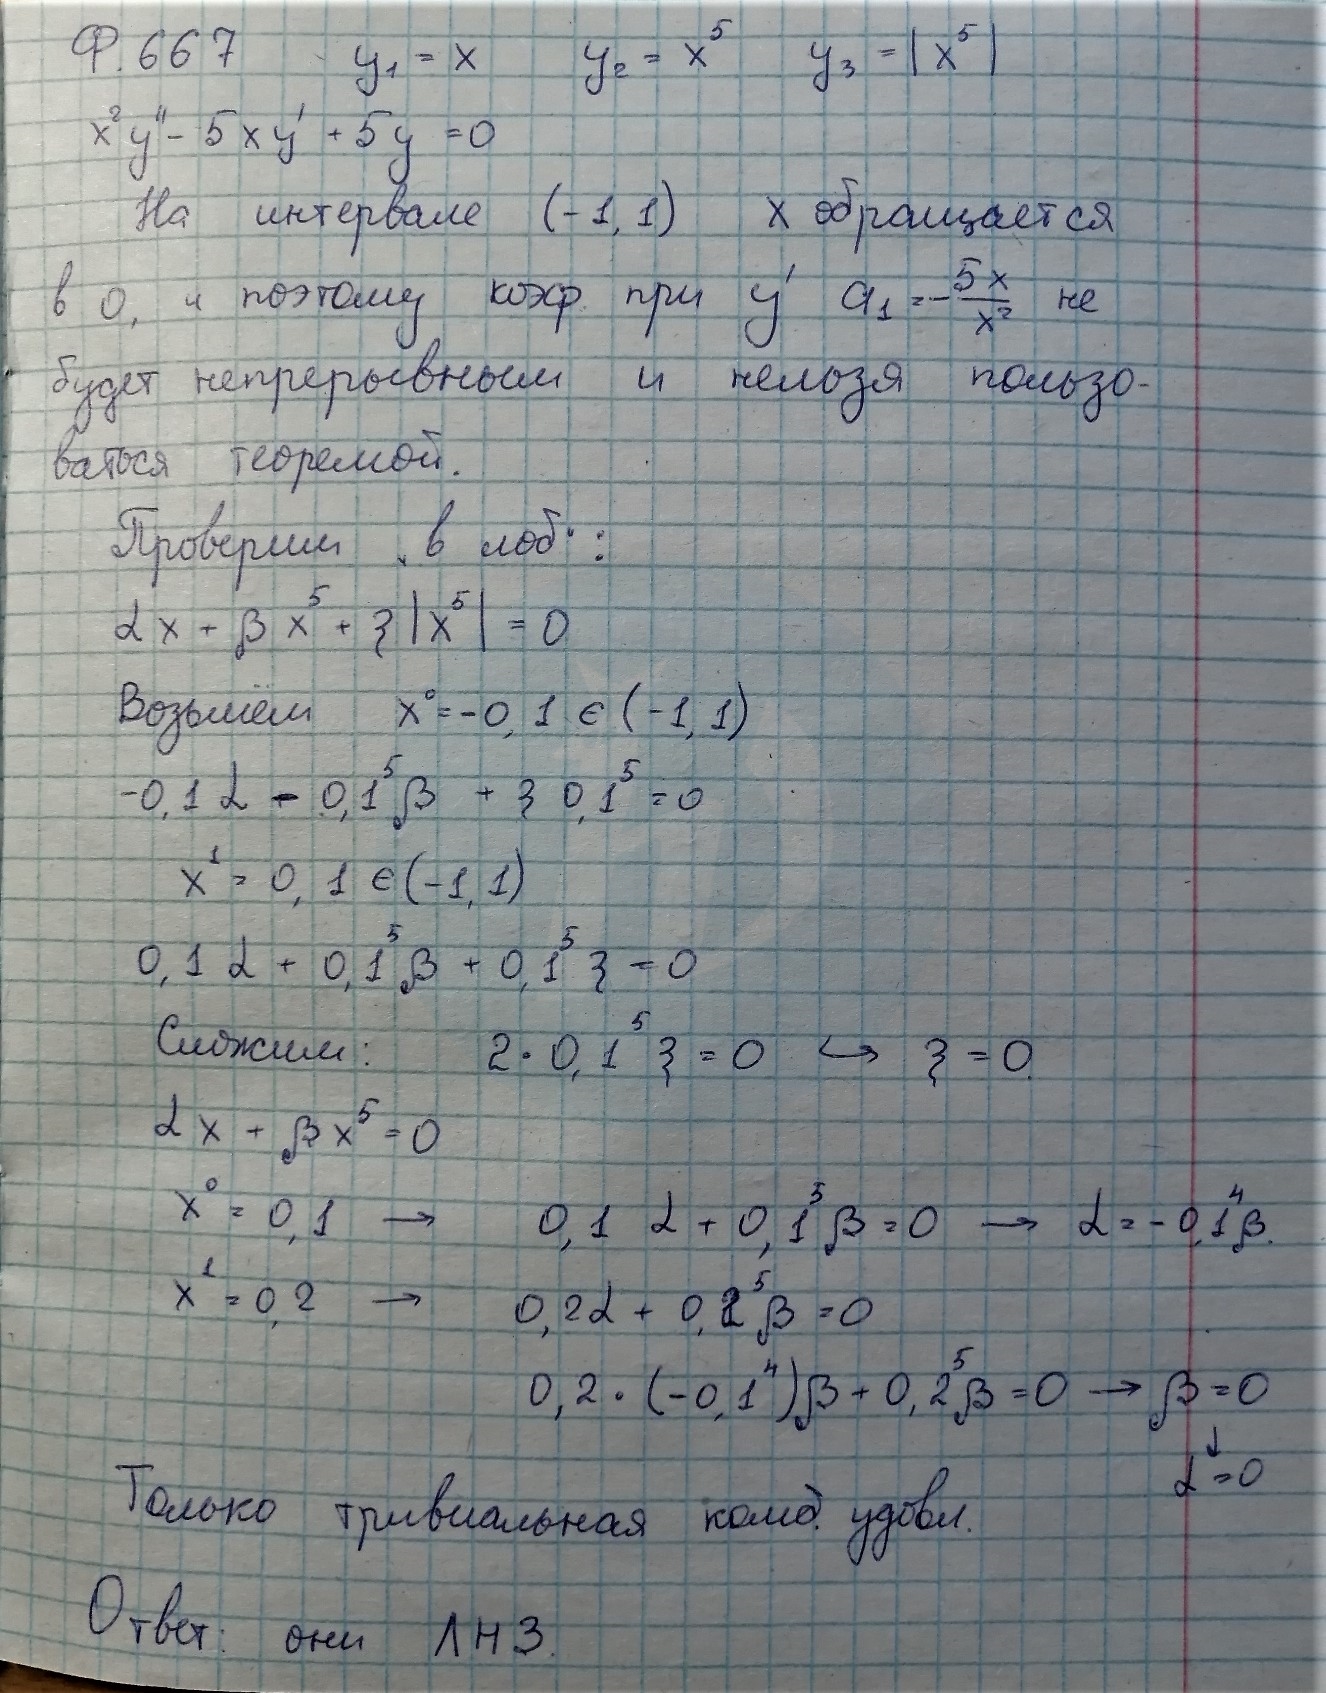 Ф. 667 y₁ = x y₂ = x⁵ y₃ = |x⁵|
x²y'' - 5xy' + 5y = 0
На интервале (-1, 1) x обращается
в 0, и поэтому коэф. при y' a₁ = -5x/x² не
будет непрерывным и нельзя пользо-
ваться теоремой.
Проверим "в лоб":
αx + βx⁵ + ξ|x⁵| = 0
Возьмём x⁰ = -0,1 ∈ (-1, 1)
-0,1α - 0,1⁵β + ξ 0,1⁵ = 0
x¹ = 0,1 ∈ (-1, 1)
0,1α + 0,1⁵β + 0,1⁵ξ = 0
Сложим: 2·0,1⁵ξ = 0 ↪ ξ = 0
αx + βx⁵ = 0
x⁰ = 0,1 → 0,1 α + 0,1⁵β = 0 → α = -0,1⁴β.
x¹ = 0,2 → 0,2α + 0,2⁵β = 0
0,2·(-0,1⁴)β + 0,2⁵β = 0 → β = 0
↓
α = 0
Только тривиальная комб. удовл.
Ответ: они ЛНЗ.